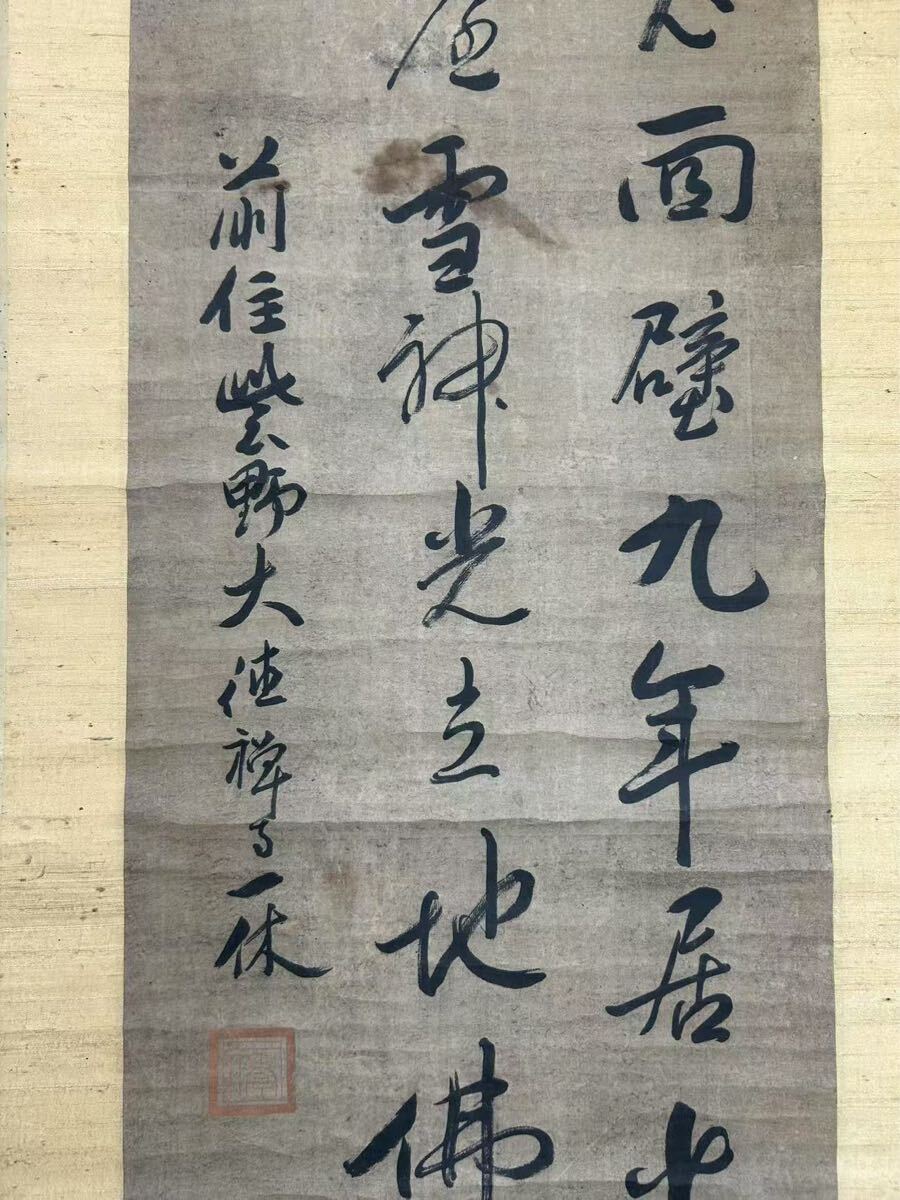 面壁九年居少
雪神光立地佛
前住紫野大徳禅寺一休